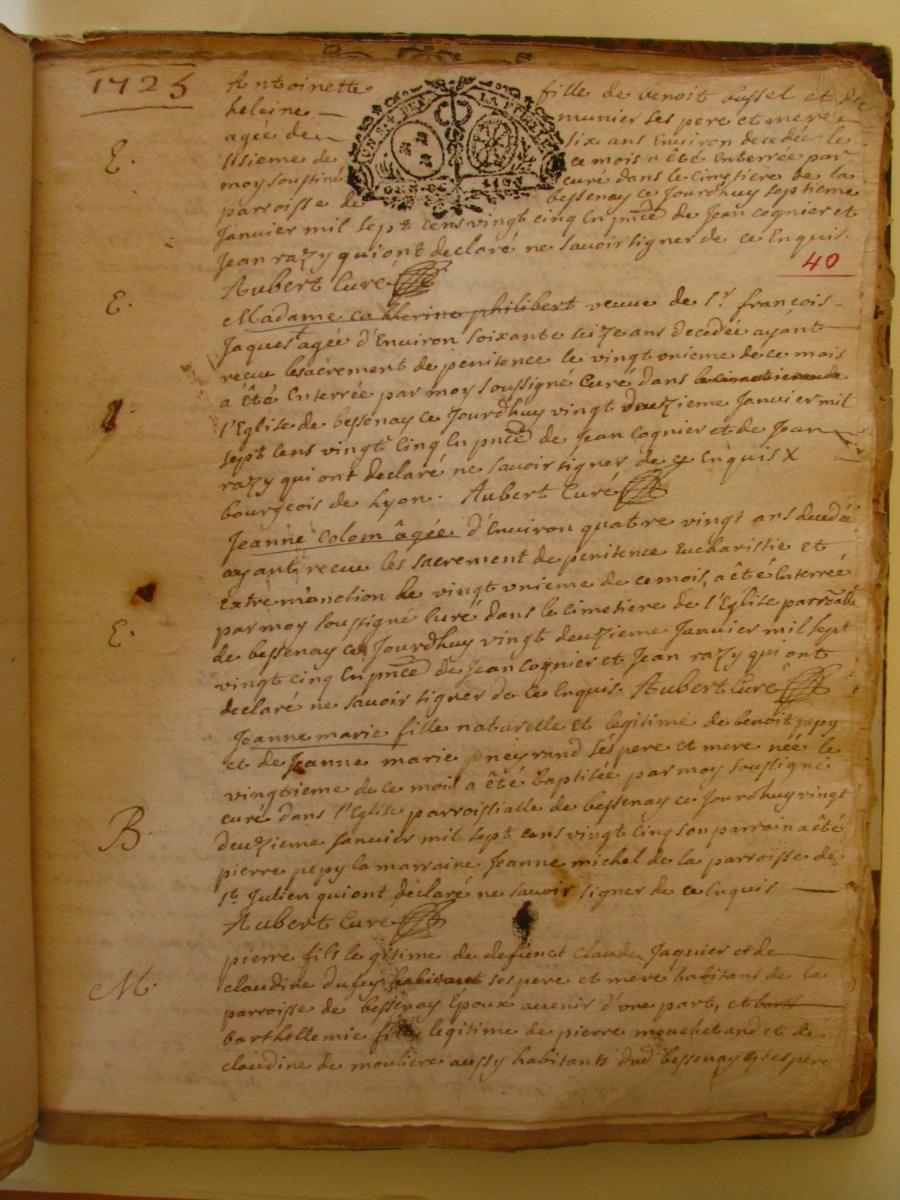 1725
Antoinette fille de benoit bussel et de
heleine munier ses pere et mere
agee de six ans Environ decedée le
E. sisieme de ce mois a été Enterrée par
moy soussiné curé dans le cimetiere de la
parroisse de bessenay ce Jourdhuy septieme
Janvier mil sept cens vingt cinq En pnce de Jean cognier et
Jean razy qui ont declaré ne savoir signer de ce Enquis.
40
Aubert Curé
E. Madame catherine philibert veuve de Sr. françois
Jaques agée d'Environ soixante seize ans decedée ayant
recu le sacrement de penitence le vingt unieme de ce mois
a été Enterrée par moy soussigné Curé dans le cimetiere de
l'Eglise de bessenay ce Jourdhuy vingt deuzieme Janvier mil
sept cens vingt Cinq En pnce de Jean Cognier et de Jean
razy qui ont declaré ne savoir signer de ce Enquis X
bourgeois de Lyon. Aubert Curé
Jeanne Colom âgée d'Environ quatre vingt ans decedée
ayant recue les sacrement de penitence Eucharistie et
extre monction le vingt unieme de ce mois, a été Enterrée
E. par moy soussigné Curé dans le cimetiere de l'Eglise parroalle
de bessenay ce Jourdhuy vingt deuzieme Janvier mil sept
vingt cinq En pnce de Jean Cognier et Jean razy qui ont
declaré ne savoir signer de ce Enquis. Aubert Curé
Jeanne marie fille naturelle et legitime de benoit pepy
et de Jeanne marie pneyrand ses pere et mere née le
vingtieme de ce mois a été baptisée par moy soussigné
curé dans l'Eglise parroissialle de bessenay ce Jourdhuy vingt
B. deuzieme Janvier mil sept cens vingt cinq son parrain a été
pierre pepy la marraine Jeanne michel de la parroisse de
St. Julien qui ont déclaré ne savoir signer de ce Enquis
Aubert Curé
pierre fils legitime de defunct claude Jaquier et de
M. claudine dufey habitant ses pere et mere habitans de la
parroisse de bessenay Epoux avenir d'une part, et barth
barthellemie fille legitime de pierre mouchetand et de
claudine de mouliere aussy habitants dud bessenay ses pere